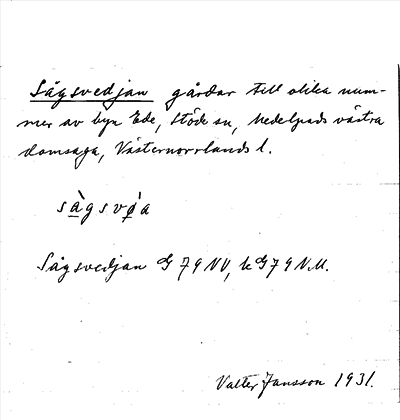 Sågsvedjan gårdar till olika num-
mer av byn Ede, Stöde sn, Medelpads västra
domsaga, Västernorrlands l.
sàgsvǿa
Sågsvedjan G 79 NV, k G 79 N.M.
Valter Jansson 1931.